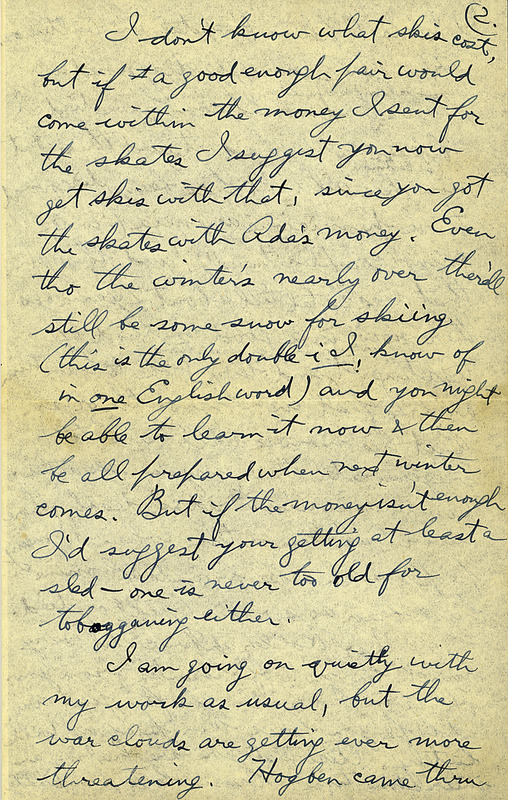 2.
I don't know what skis cost,
but if a good enough pair would
come within the money I sent for
the skates I suggest you now
get skis with that, since you got
the skates with Ada's money. Even
tho the winter's nearly over there'll
still be some snow for skiing
(this is the only double-i I, know of
in one English word) and you might
be able to learn it now & then
be all prepared when next winter
comes. But if the money isn't enough
I'd suggest your getting at least a
sled – one is never too old for
tobogganing either.
I am going on quietly with
my work as usual, but the
war clouds are getting ever more
threatening. Hogben came thru